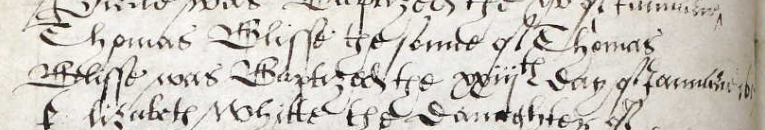 was Baptized the of
Thomas Blisse the sonne of Thomas
Blisse was Baptized the xxiijth day of Januarie
Elizabeth Whitte the Daughter of